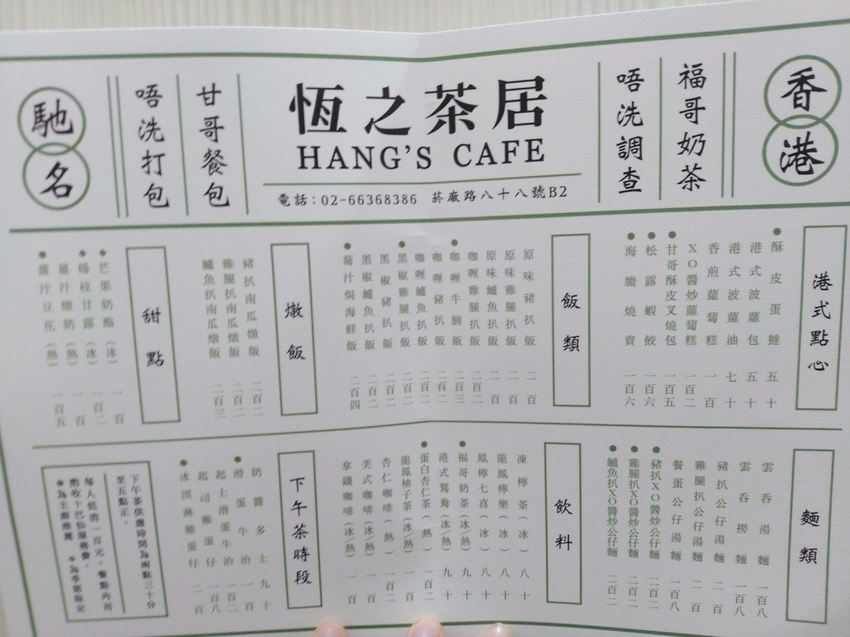 香港
福哥奶茶
唔洗調查
恆之茶居
HANG'S CAFE
電話:02-66368386 菸廠路八十八號B2
甘哥餐包
唔洗打包
馳名
港式點心
●酥皮蛋撻 五十
港式波蘿包 五十
港式波蘿油 七十
香煎蘿蔔糕 一百
XO醬炒蘿蔔糕 一百二
●甘哥酥皮叉燒包 一百五
●松露蝦餃 一百六
●海膽燒賣 一百六
飯類
原味豬扒飯 二百
原味雞腿扒飯 二百
原味鱸魚扒飯 二百
咖喱雞腿扒飯 二百二
●咖喱牛腩飯 二百三
咖喱豬扒飯 二百二
咖喱鱸魚扒飯 二百二
●黑椒雞腿扒飯 二百二
黑椒豬扒飯 二百二
黑椒鱸魚扒飯 二百二
●葡汁焗海鮮飯 二百四
燉飯
豬扒南瓜燉飯 二百二
雞腿扒南瓜燉飯 二百二
鱸魚扒南瓜燉飯 二百三
甜點
◆芒果奶酪(冰) 一百
◆楊枝甘露(冰) 一百二
薑汁燉奶(熱) 一百
●薑汁豆花(熱) 一百五
麵類
雲吞湯麵 一百八
雲吞撈麵 一百八
豬扒公仔湯麵 二百
雞腿扒公仔湯麵 二百
餐蛋公仔麵 一百八
●豬扒XO醬炒公仔麵 二百二
●雞腿扒XO醬炒公仔麵 二百二
●鱸魚扒XO醬炒公仔麵 二百二
飲料
凍檸茶(冰) 八十
龍鳳檸樂(冰) 八十
鳳檸七喜(冰) 八十
●福哥奶茶(冰/熱) 九十
港式鴛鴦(冰/熱) 九十
●蛋白杏仁茶(熱) 一百二
龍鳳柚子茶(冰/熱) 一百
杏仁咖啡(熱) 一百
美式咖啡(冰/熱) 一百
拿鐵咖啡(冰/熱) 一百
下午茶時段
奶醬多士 九十
●滑蛋牛治 一百
起士滑蛋牛治 一百二
起司雞蛋仔 一百八
●冰淇淋雞蛋仔 二百
下午茶供應時間為兩點三十分
至五點正。
每人低消一百元，餐點內用
酌收十巴仙服務費。
●為主廚推薦 ◆為季節限定